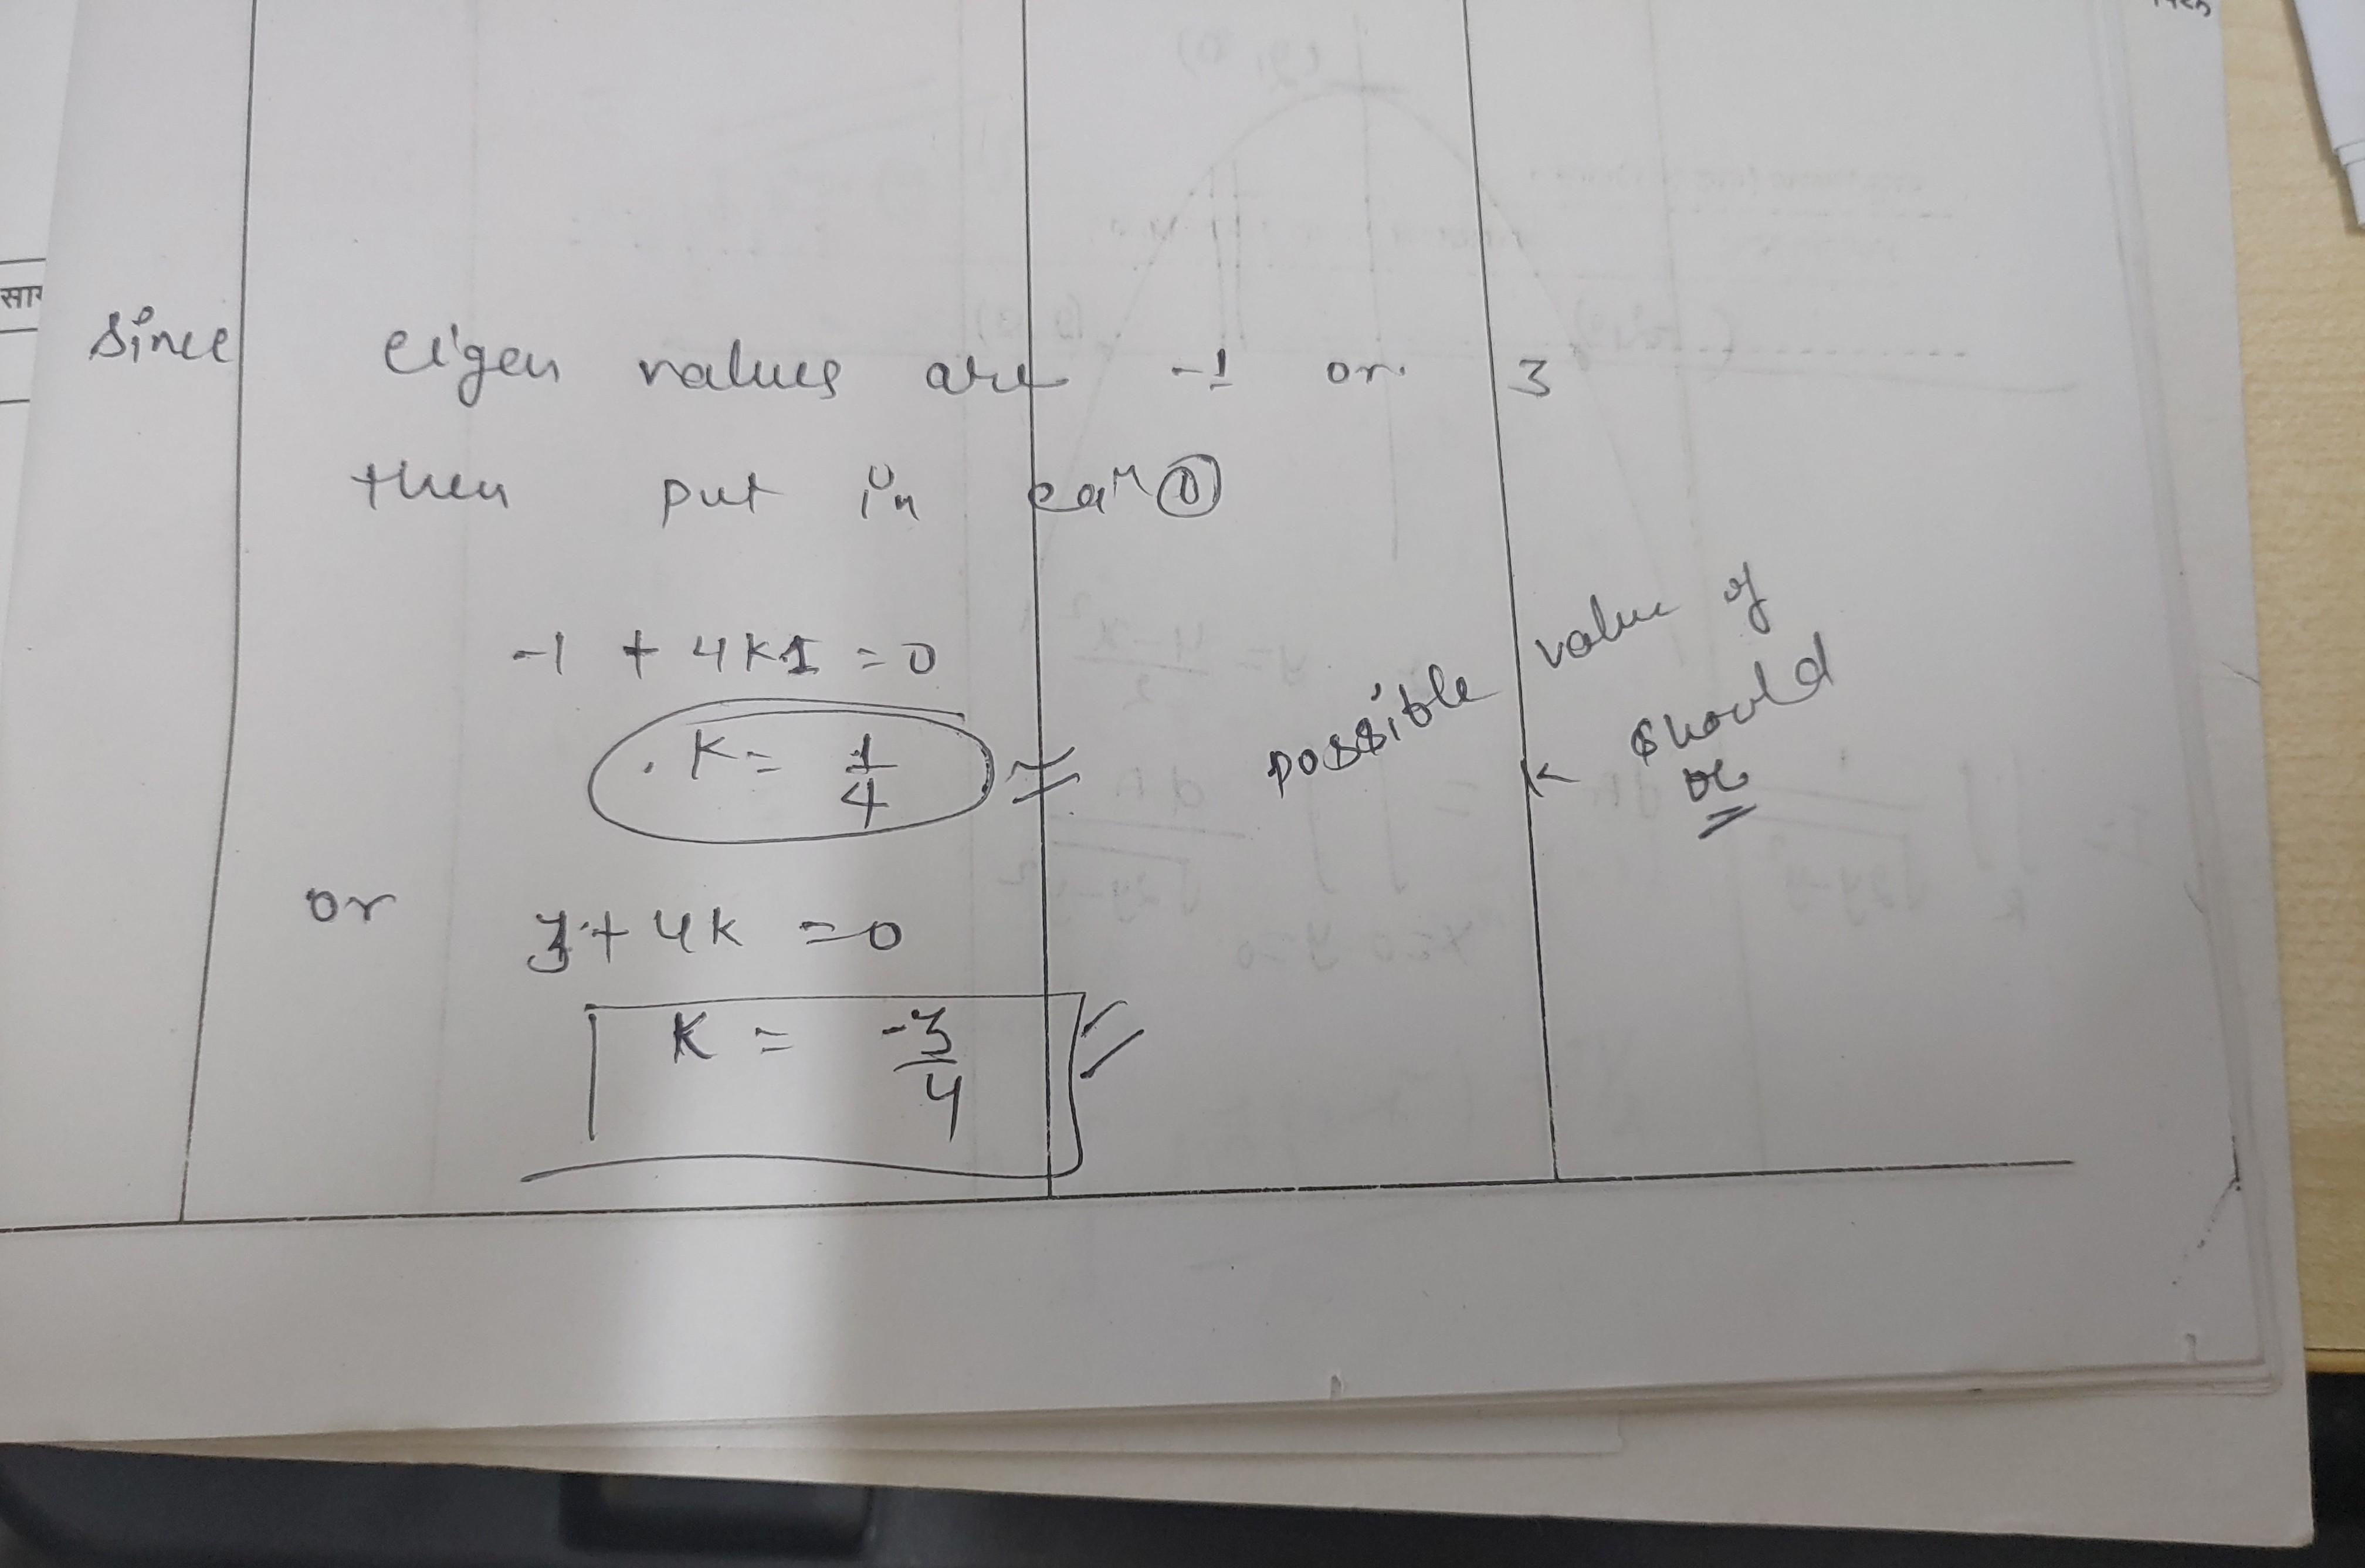 सा
Since eigen values are -1 or 3
then put in eqn ①
-1 + 4k1 = 0
K = 1/4
possible value of
K should
be
or 3 + 4k = 0
K = -3/4